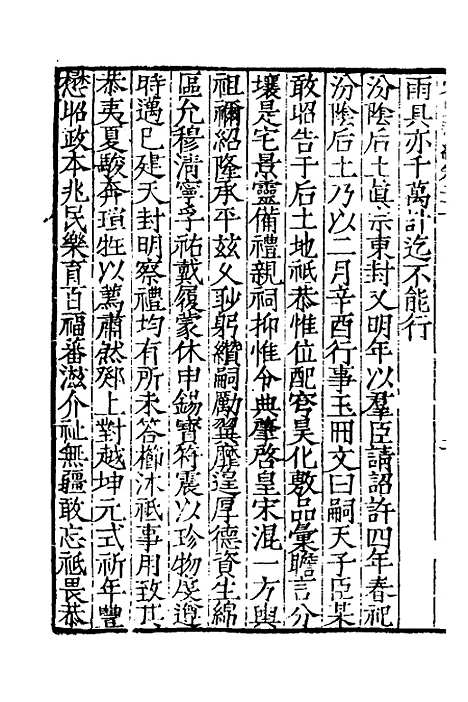 雨具亦千萬計迄不能行
汾陰后土真宗東封又明年以羣臣請詔許四年春祀
汾陰后土乃以二月辛酉行事玉冊文曰嗣天子臣某
敢昭告于后土地祇恭惟位配穹昊化敷品彙瞻言分
壤是宅景靈備禮親祠抑惟令典肇啓皇宋混一方輿
祖禰紹隆承平茲乆眇躬纘嗣勵翼靡遑厚德資生綿
區允穆清寧孚祐戴履蒙休申錫寳符震以珍物虔遵
時邁已建天封明察禮均有所未答櫛沐祗事用致其
恭夷夏駿奔瑄牲以薦肅然鄈上對越坤元式祈年豐
懋昭政本兆民樂育百福蕃滋介祉無疆敢忘祗畏恭